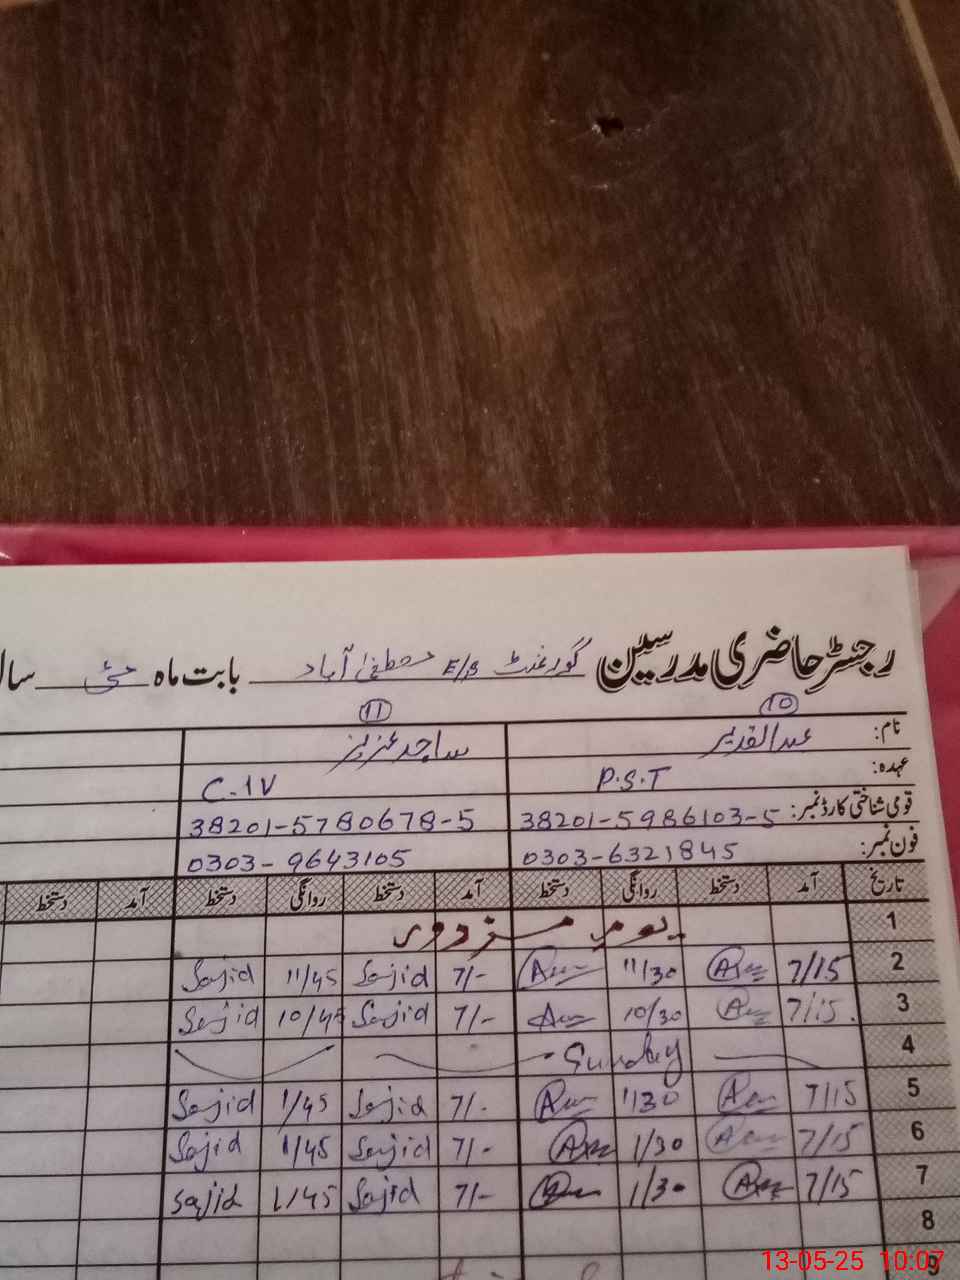 رجسٹر حاضری مدرسین گورنمنٹ E/S مصطفیٰ آباد بابت ماہ مئی سال
10 11
نام: عبدالقدیر ساجد عزیز
عہدہ: P.S.T C-IV
قومی شناختی کارڈ نمبر: 38201-5986103-5 38201-5780678-5
فون نمبر: 0303-6321845 0303-9643105
تاریخ آمد دستخط روانگی دستخط آمد دستخط روانگی دستخط آمد دستخط
1 یوم مزدور
2 7/15 11/30 7/- Sajid 11/45 Sajid
3 7/15 10/30 7/- Sajid 10/45 Sajid
4 Sunday
5 7/15 1/30 7/- Sajid 1/45 Sajid
6 7/15 1/30 7/- Sajid 1/45 Sajid
7 7/15 1/30 7/- Sajid 1/45 Sajid
8
9
13-05-25 10:07